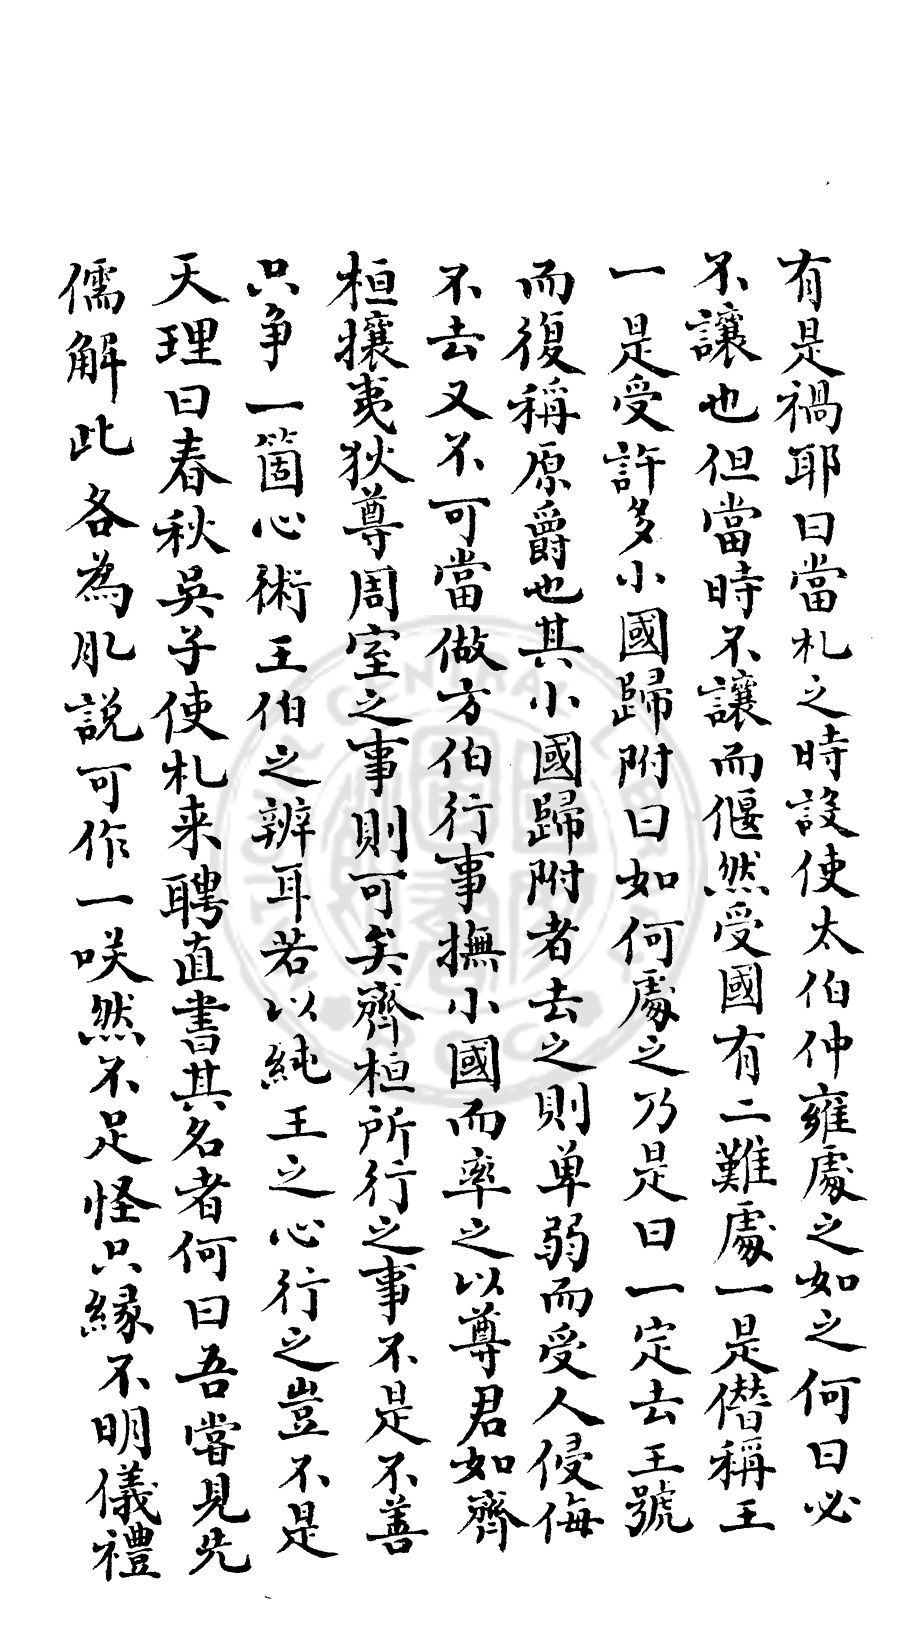 有是禍耶曰當札之時設使太伯仲雍處之如之何曰必
不讓也但當時不讓而偃然受國有二難處一是僭稱王
一是受許多小國歸附曰如何處之乃是曰一定去王號
而復稱原爵也其小國歸附者去之則单弱而受人侵侮
不去又不可當做方伯行事撫小國而率之以尊君如齊
桓攘夷狄尊周室之事則可矣齊桓所行之事不是不善
只争一箇心術王伯之辨耳若以純王之心行之豈不是
天理曰春秋吳子使札来聘直書其名者何曰吾嘗見先
儒解此各為肌說可作一咲然不足怪只緣不明儀禮